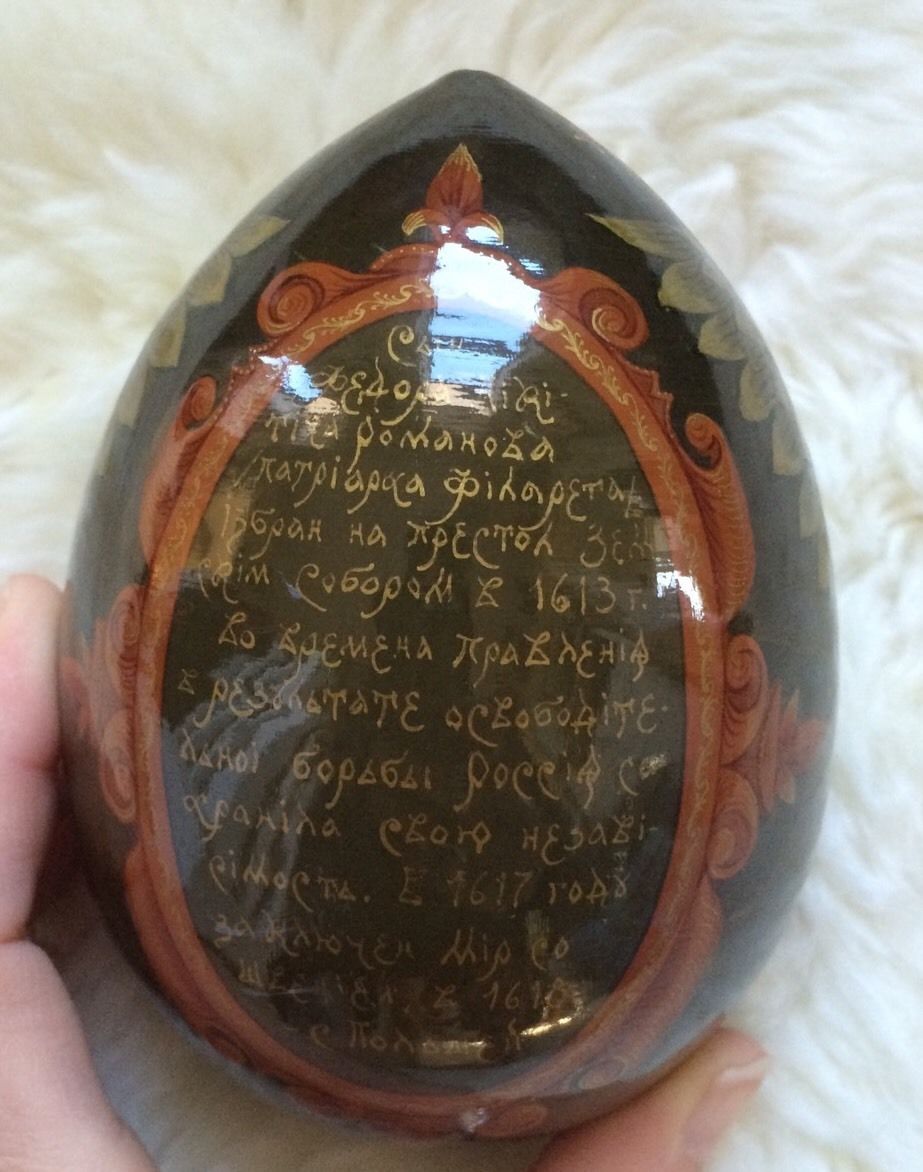 Сын
Федора Нікі-
тіча Романова
/патріарха Філарета/
Ізбран на престол Зем
скім Собором в 1613 г.
Во времена правленія
в резултате освободіте-
льной борьбы Россія со-
храніла свою незаві-
сімость. В 1617 году
заключен мір со
Швеціей, в 1618
с Польшей